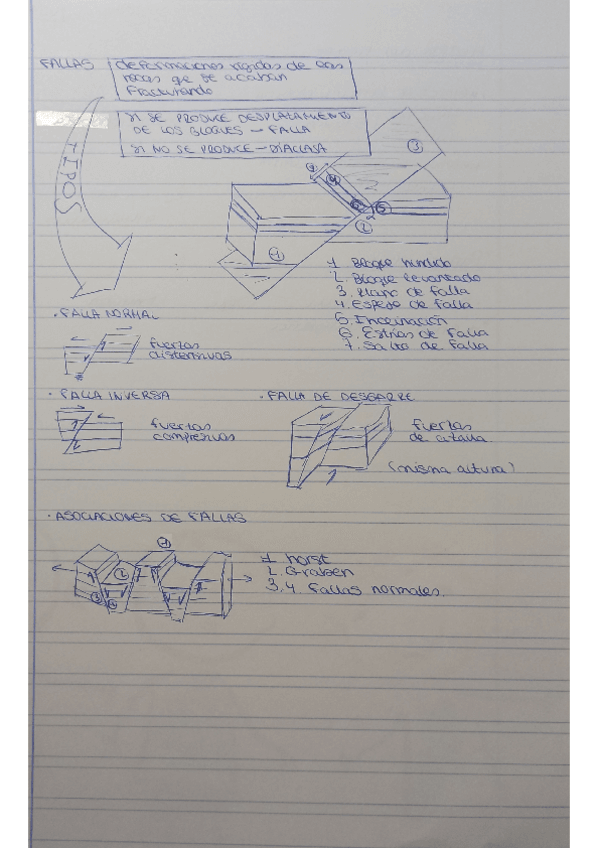 FALLAS
deformaciones rígidas de las
rocas qe se acaban
fracturando
SI SE PRODUCE DESPLAZAMIENTO
DE LOS BLOQUES - FALLA
SI NO SE PRODUCE - DIACLASA
TIPOS
3
7
4
6
5
2
1
1. Bloque hundido
2. Bloque levantado
3. Plano de falla
4. Espejo de falla
5. Inclinación
6. Estrías de falla
7. Salto de falla
· FALLA NORMAL
fuerzas
distensivas
· FALLA INVERSA
fuerzas
compresivas
· FALLA DE DESGARRE
fuerzas
de cizalla
(misma altura)
· ASOCIACIONES DE FALLAS
1
2
3
4
1. horst
2. Graben
3.4. Fallas normales.